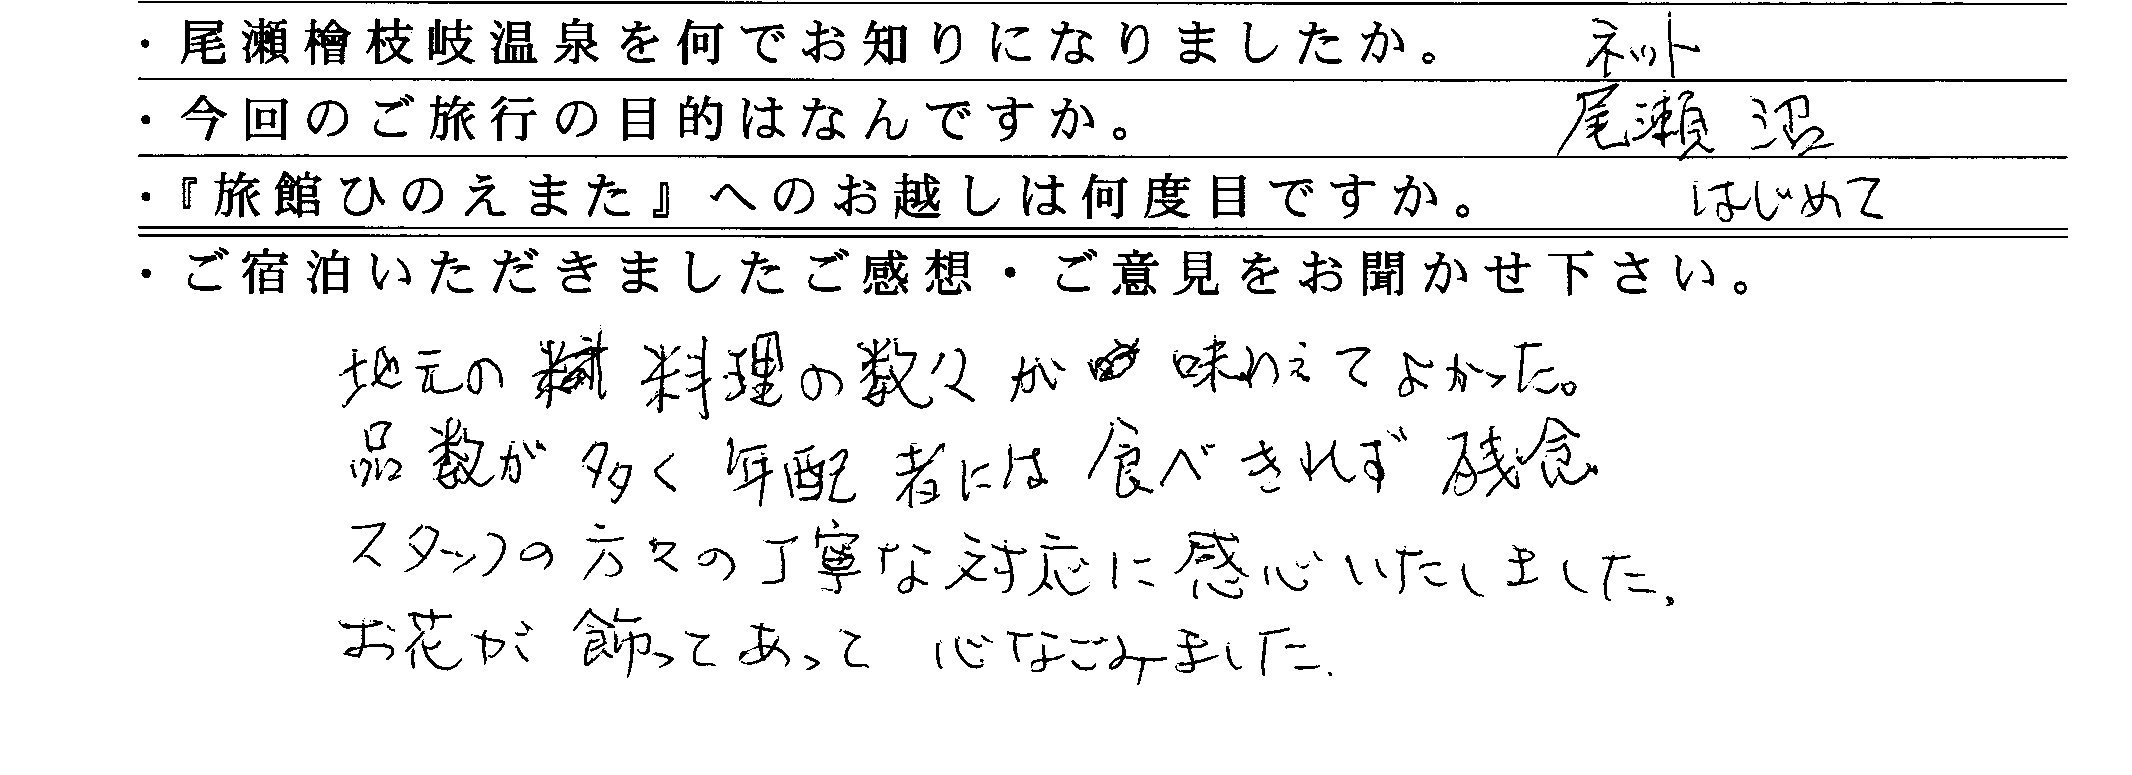 ・尾瀬檜枝岐温泉を何でお知りになりましたか。 ネット
・今回のご旅行の目的はなんですか。 尾瀬沼
・『旅館ひのえまた』へのお越しは何度目ですか。 はじめて
・ご宿泊いただきましたご感想・ご意見をお聞かせ下さい。
地元の料理の数々が味わえてよかった。
品数が多く年配者には食べきれず残念
スタッフの方々の丁寧な対応に感心いたしました。
お花が飾ってあって心なごみました.